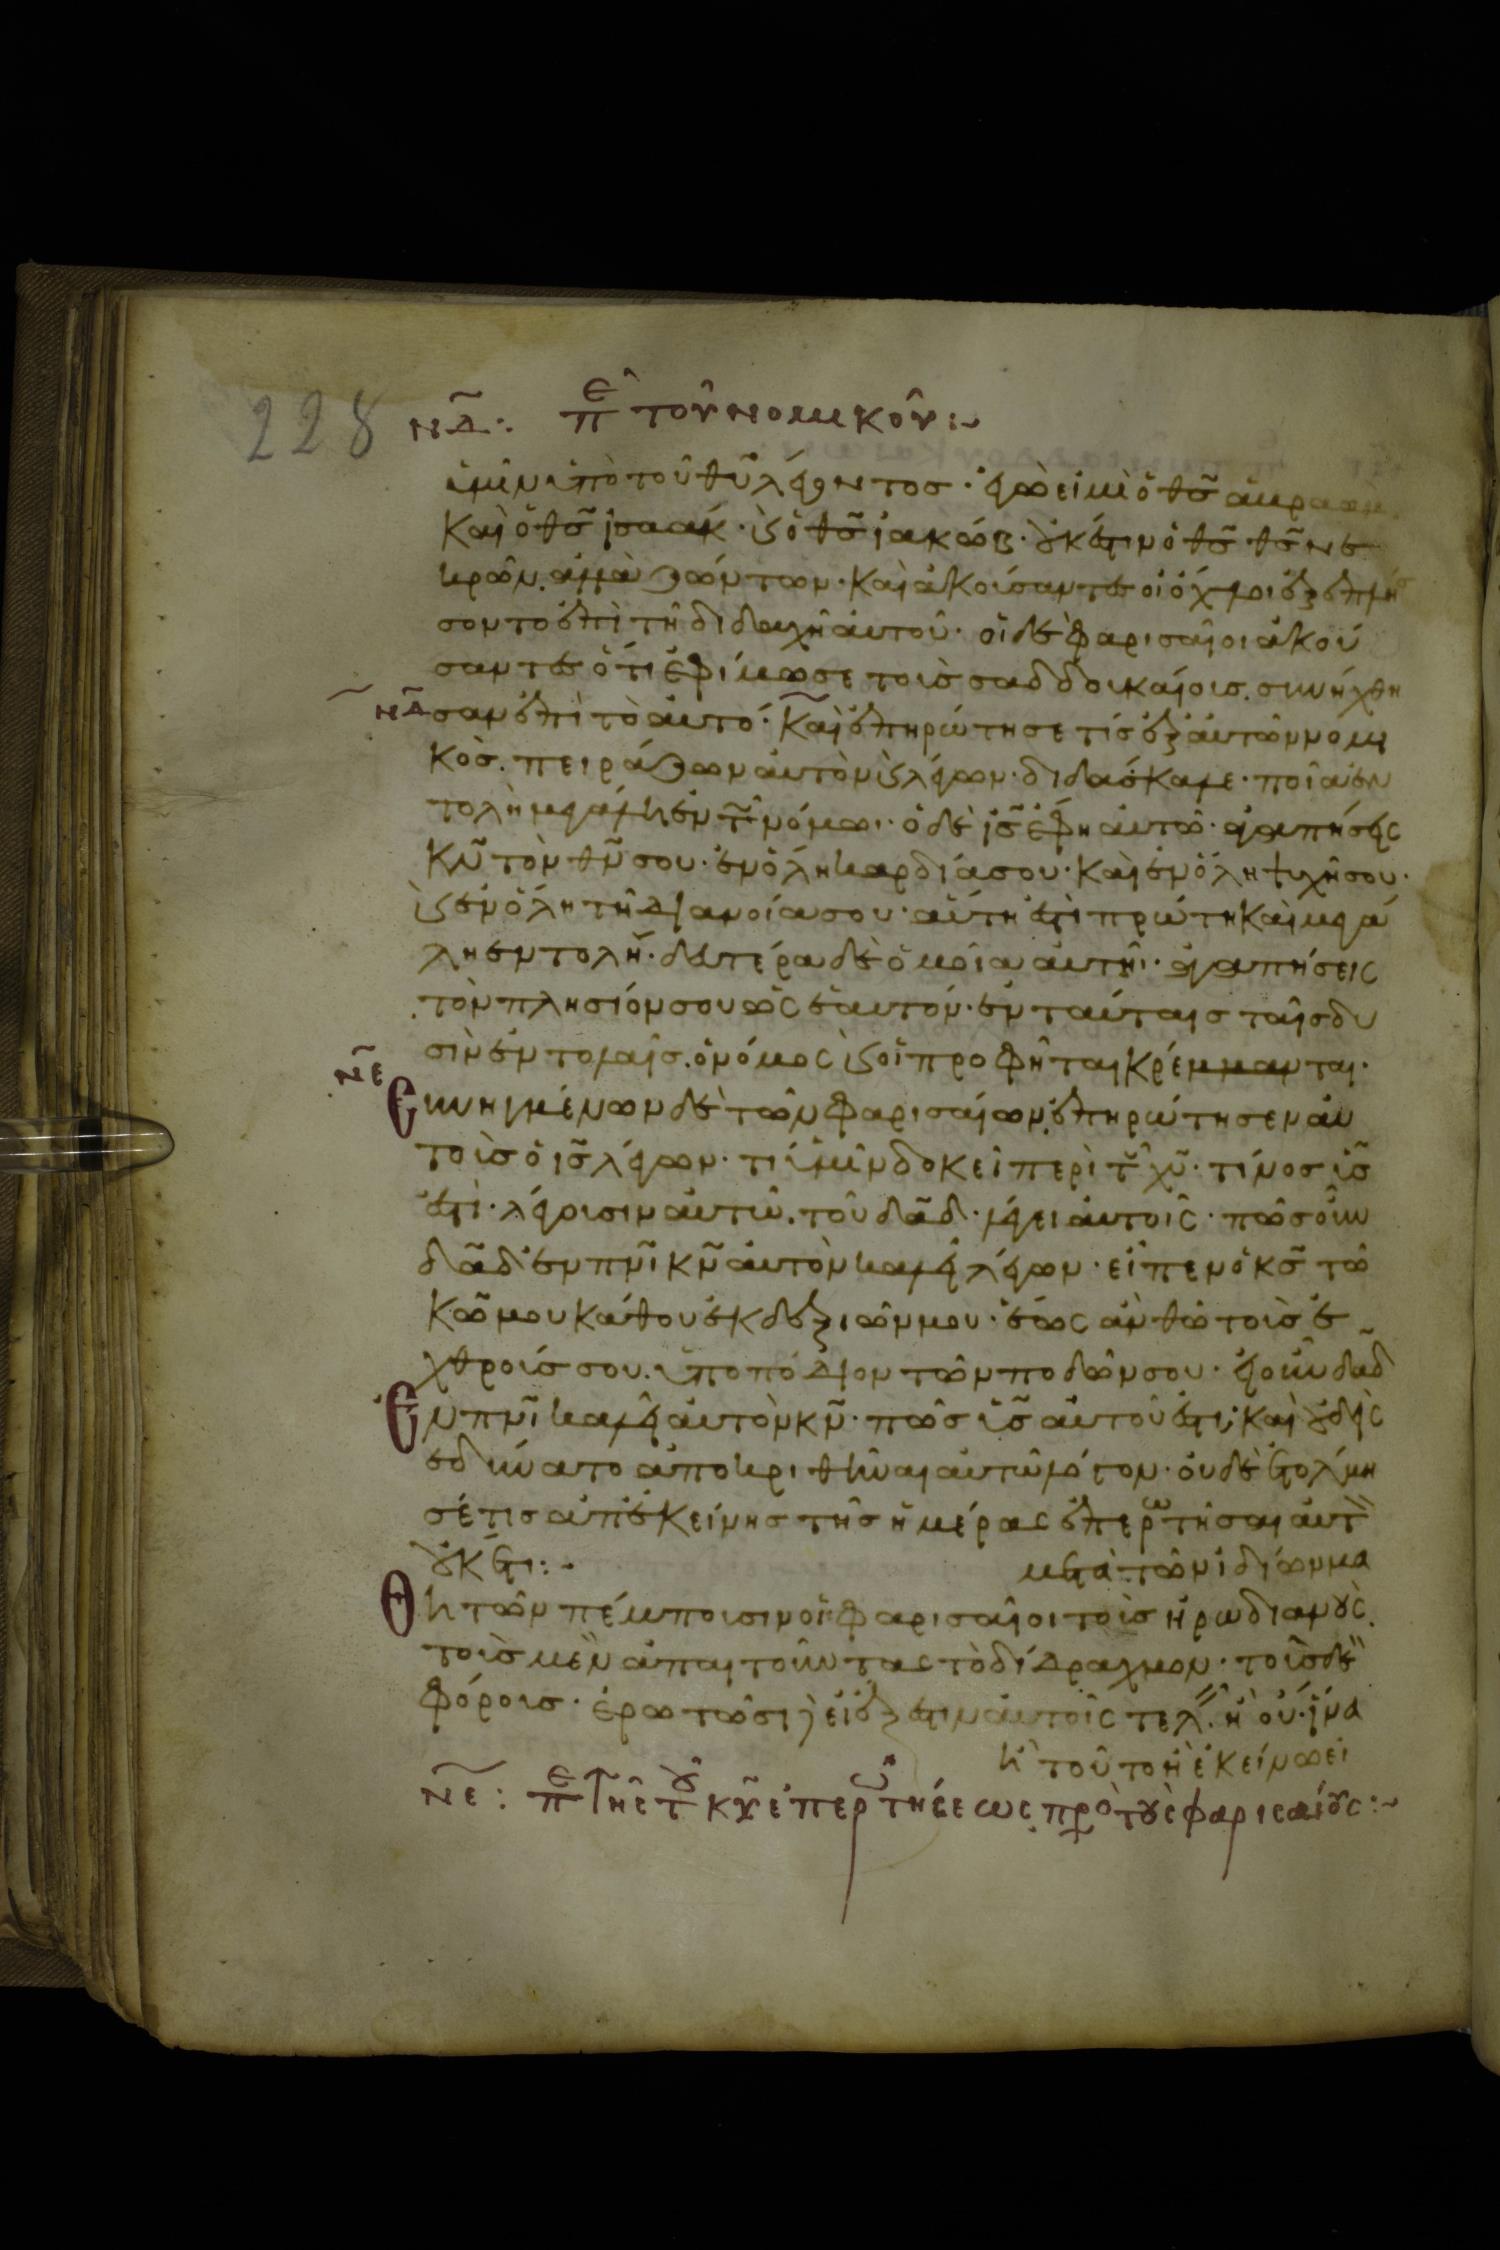 228
ΝΔ: πε τοῦ νομικοῦ:~
ὑμῖν ὑπὸ τοῦ θυ λέγοντος· ἐγώ εἰμι ὁ θς ἀβρααμ
καὶ ὁ θς ἰσαάκ· κ(αὶ) ὁ θς ἰακώβ· οὐκ ἔστιν ὁ θς θς νε
κρῶν. ἀλλὰ ζώντων· καὶ ἀκούσαντες οἱ ὄχλοι ἐξεπλήσ
σοντο ἐπὶ τῇ διδαχῇ αὐτοῦ· οἱ δὲ φαρισαῖοι ἀκού
σαντες ὅτι ἐφίμωσε τοὺς σαδδουκαίους. συνήχθη
ΝΔ σαν ἐπὶ τὸ αὐτό· καὶ ἐπηρώτησε τίς ἐξ αὐτῶν νομι
κὸς. πειράζων αὐτὸν κ(αὶ) λέγων· διδάσκαλε· ποία ἐν
τολὴ μεγάλη ἐν τῷ νόμωι· ὁ δὲ ις ἔφη αὐτῶ· ἀγαπήσεις
κν τὸν θν σου· ἐν ὅλη καρδία σου· καὶ ἐν ὅλη ψυχῆ σου·
κ(αὶ) ἐν ὅλη τῆ διανοία σου· αὕτη ἐστὶ πρώτη καὶ μεγά
λη ἐντολή· δευτέρα δὲ ὁμοία αὐτῆι· ἀγαπήσεις
τὸν πλησίον σου ὡς ἑαυτόν· ἐν ταύταις ταῖς δυ
σὶν ἐντολαῖς. ὁ νόμος κ(αὶ) οἱ προφῆται κρέμμανται·
ΝΕ
Συνηγμένων δὲ τῶν φαρισαίων, ἐπηρώτησεν αὐ
τοὺς ὁ ις λέγων· τί ὑμῖν δοκεῖ περὶ τοῦ χυ· τίνος υς
ἐστὶ· λέγουσιν αὐτῶ. τοῦ δαδ· λέγει αὐτοῖς· πῶς οὖν
δαδ ἐν πνι κν αὐτὸν καλεῖ λέγων· εἶπεν ὁ κς τῶ
κω μου κάθου ἐκ δεξιῶν μου· ἕως ἂν θῶ τοὺς ἐ
χθρούς σου. ὑποπόδιον τῶν ποδῶν σου· εἰ οὖν δαδ
ἐν πνι καλεῖ αὐτὸν κν· πῶς υς αὐτοῦ ἐστι; καὶ οὐδεὶς
ἐδύνατο ἀποκριθῆναι αὐτῶ λόγον· οὐδὲ ἐτόλμη
σέ τις ἀπ' ἐκείνης τῆς ἡμέρας ἐπερωτῆσαι αὐτ
οὐκέτι:· μετὰ τῶν ἰδίων μα
Θητῶν πέμπουσιν οἱ φαρισαῖοι τοὺς ἡρωδιανούς.
τοὺς μὲν ἀπαιτοῦντας τὸ δίδραχμον· τοῦς δὲ
φόρους· ἐρωτῶσι εἰ ἔξεστιν αὐτοῖς τελ. ἢ οὔ· ἵνα
ἢ τοῦτο ἢ ἐκείνω εἰ
ΝΕ: πε τῆς τοῦ κυ ἐπερωτήσεως πρὸ(ς) τοὺς φαρισαίους:~